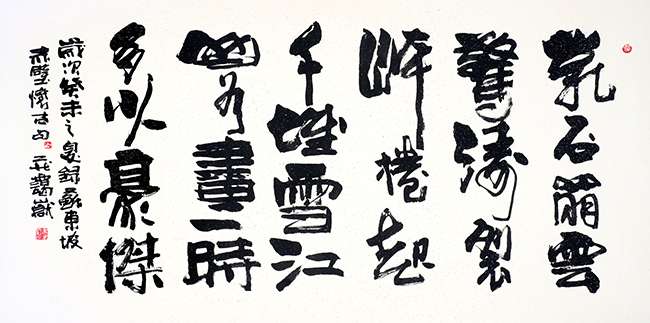 乳石崩雲
驚濤裂
岸捲起
千堆雪江
山如畫一時
多少豪傑
歲次癸未之夏錄蘇東坡
赤壁懷古句